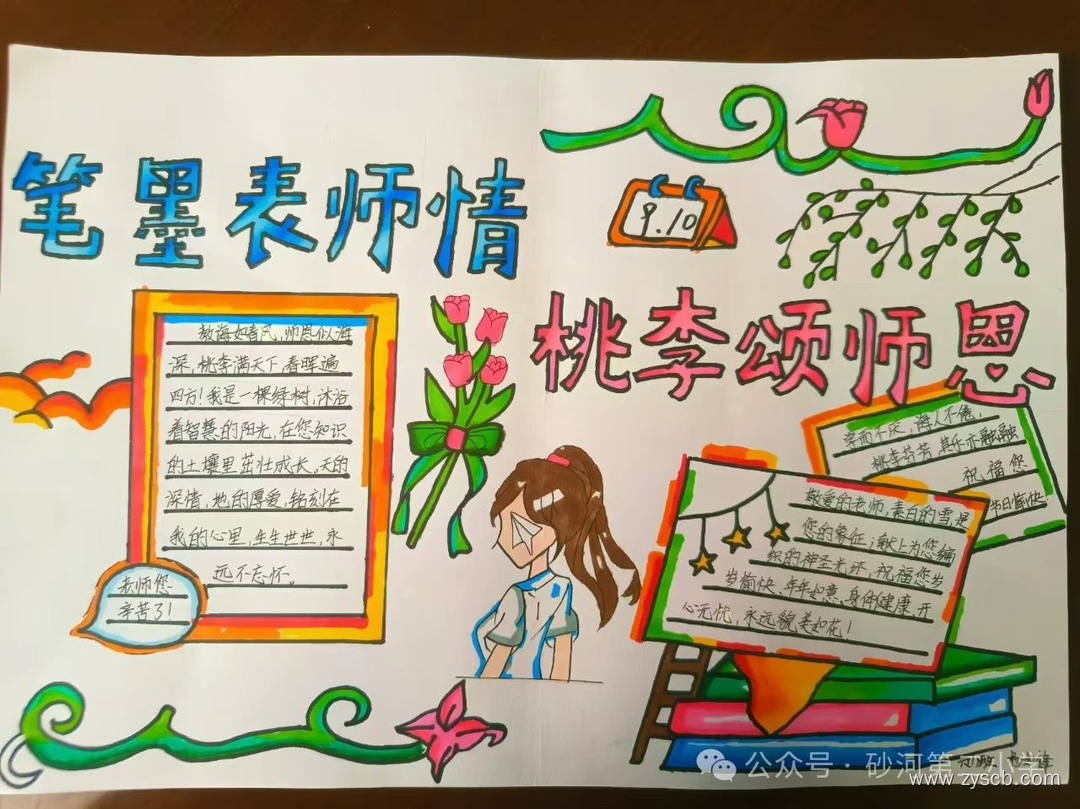 笔墨表师情
9.10
桃李颂师恩
教诲如春风,师恩似海
深,桃李满天下,春晖遍
四方!我是一棵绿树,沐浴
着智慧的阳光,在您知识
的土壤里茁壮成长。天的
深情,地的厚爱,铭刻在
我的心里,生生世世,永
远不忘怀。
老师您
辛苦了!
学而不厌,诲人不倦,
桃李芬芳,其乐亦融融
祝福您
节日愉快
敬爱的老师,素白的雪,是
您的象征;献上为您编
织的神圣光环,祝福您岁
岁愉快、年年如意、身体健康、开
心无忧,永远貌美如花!
公众号·砂河第一小学
www.zyscb.com